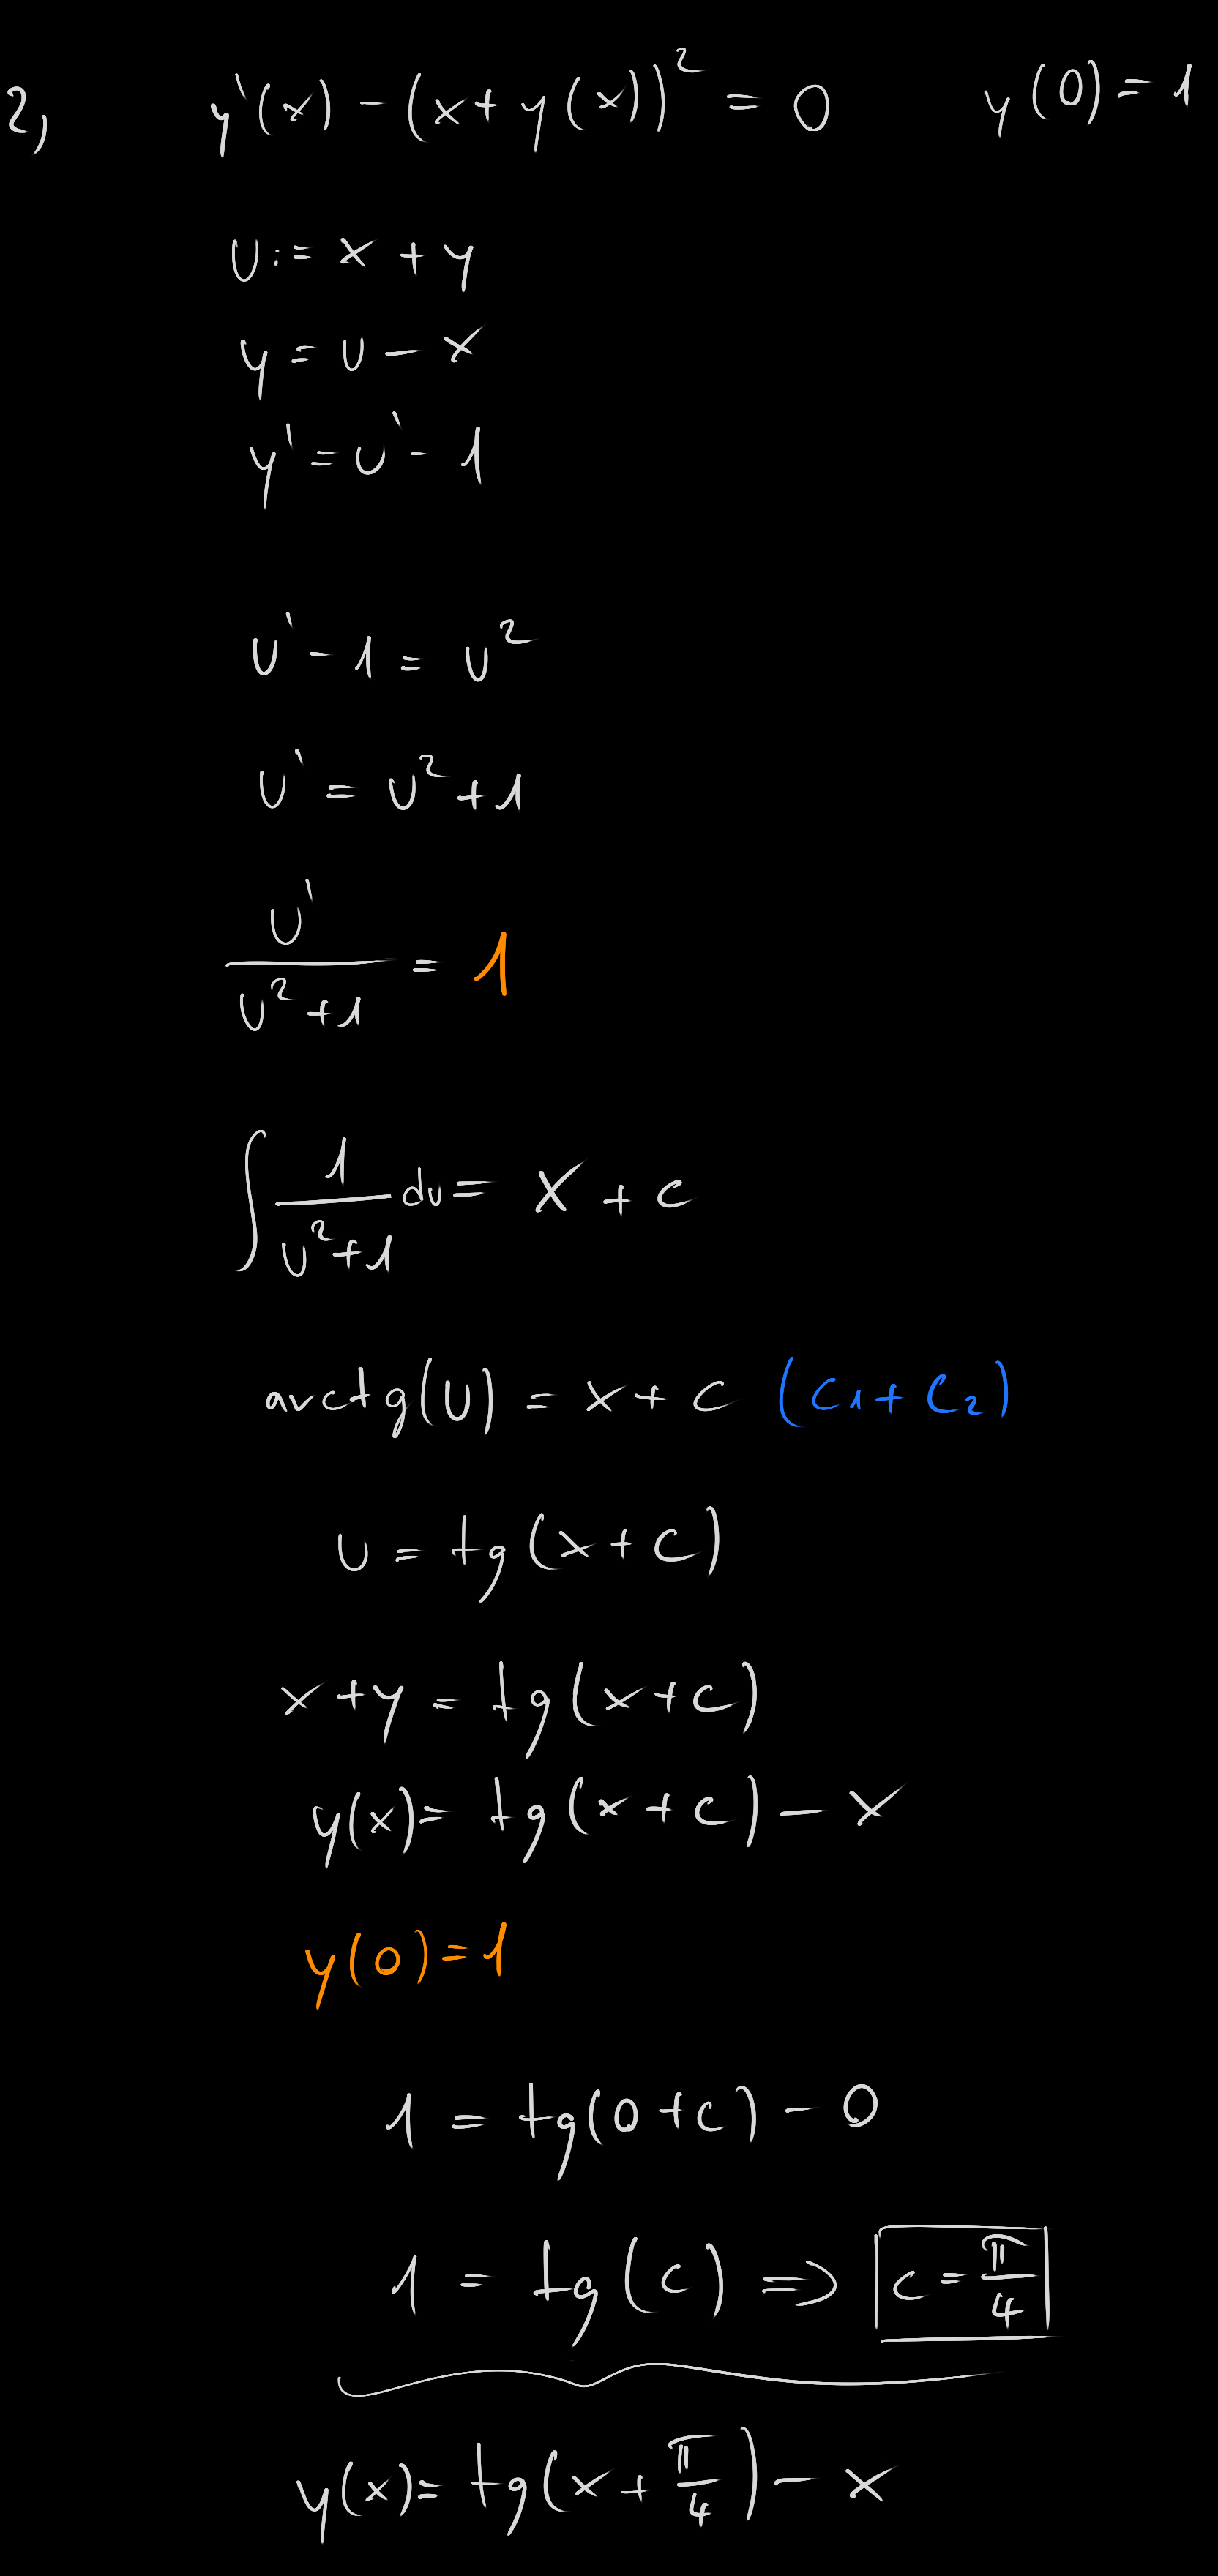 2, y'(x) - (x + y(x))² = 0 y(0) = 1
u := x + y
y = u - x
y' = u' - 1
u' - 1 = u²
u' = u² + 1
u' / (u² + 1) = 1
∫ 1 / (u² + 1) du = x + c
arctg(u) = x + c (c₁ + c₂)
u = tg(x + c)
x + y = tg(x + c)
y(x) = tg(x + c) - x
y(0) = 1
1 = tg(0 + c) - 0
1 = tg(c) ⇒ c = π/4
y(x) = tg(x + π/4) - x